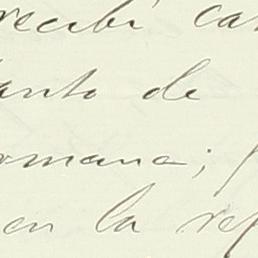 recibi ca
anto de
omana;
en la re